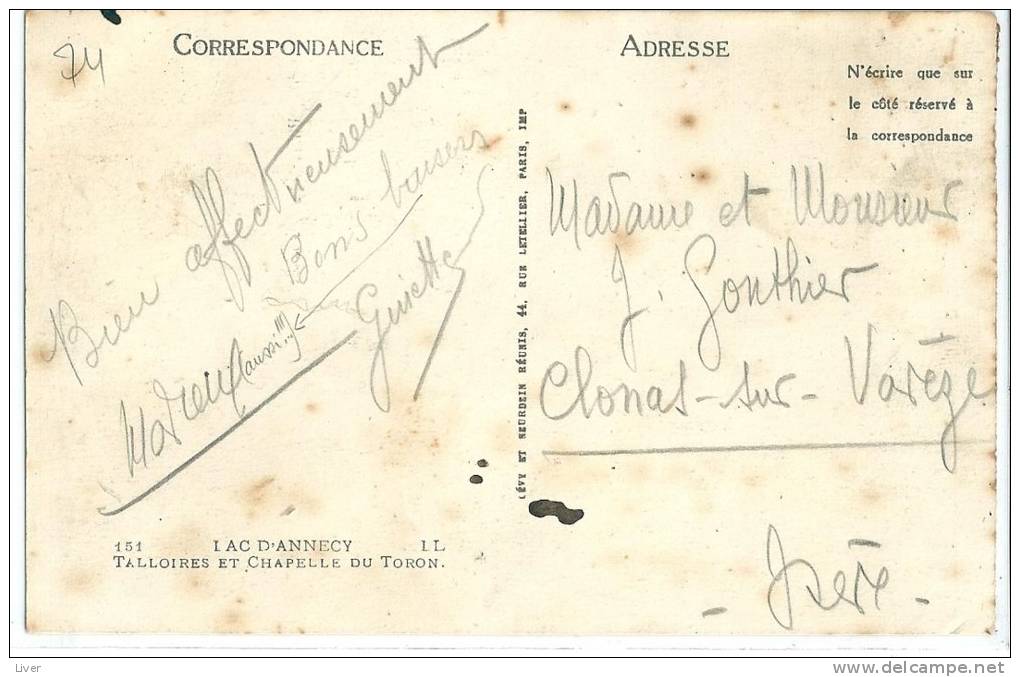 74
CORRESPONDANCE
Bien affectueusement
Bons baisers
Guiette
(aussi!!!!)
151 LAC D'ANNECY LL
TALLOIRES ET CHAPELLE DU TORON.
LÉVY ET NEURDEIN RÉUNIS, 44, RUE LETELLIER, PARIS, IMP
ADRESSE
N'écrire que sur
le côté réservé à
la correspondance
Madame et Monsieur
J. Gonthier
Clonas-sur-Varèze
- Isère -
Liver
www.delcampe.net